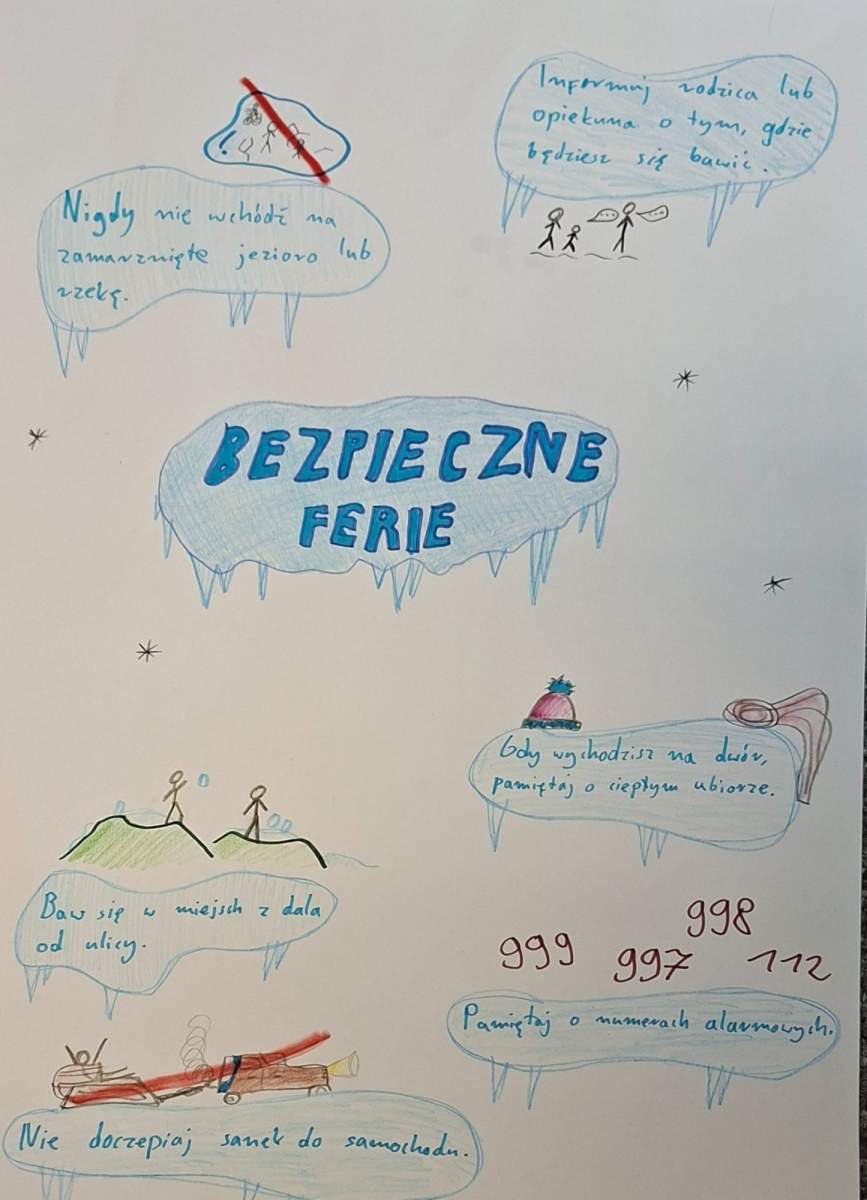 Nigdy nie wchódź na
zamarznięte jezioro lub
rzekę.
Informuj rodzica lub
opiekuna o tym, gdzie
będziesz się bawić.
BEZPIECZNE
FERIE
Gdy wychodzisz na dwór,
pamiętaj o ciepłym ubiorze.
Baw się w miejsch z dala
od ulicy.
998
999 997 112
Pamiętaj o numerach alarmowych.
Nie doczepiaj sanek do samochodu.